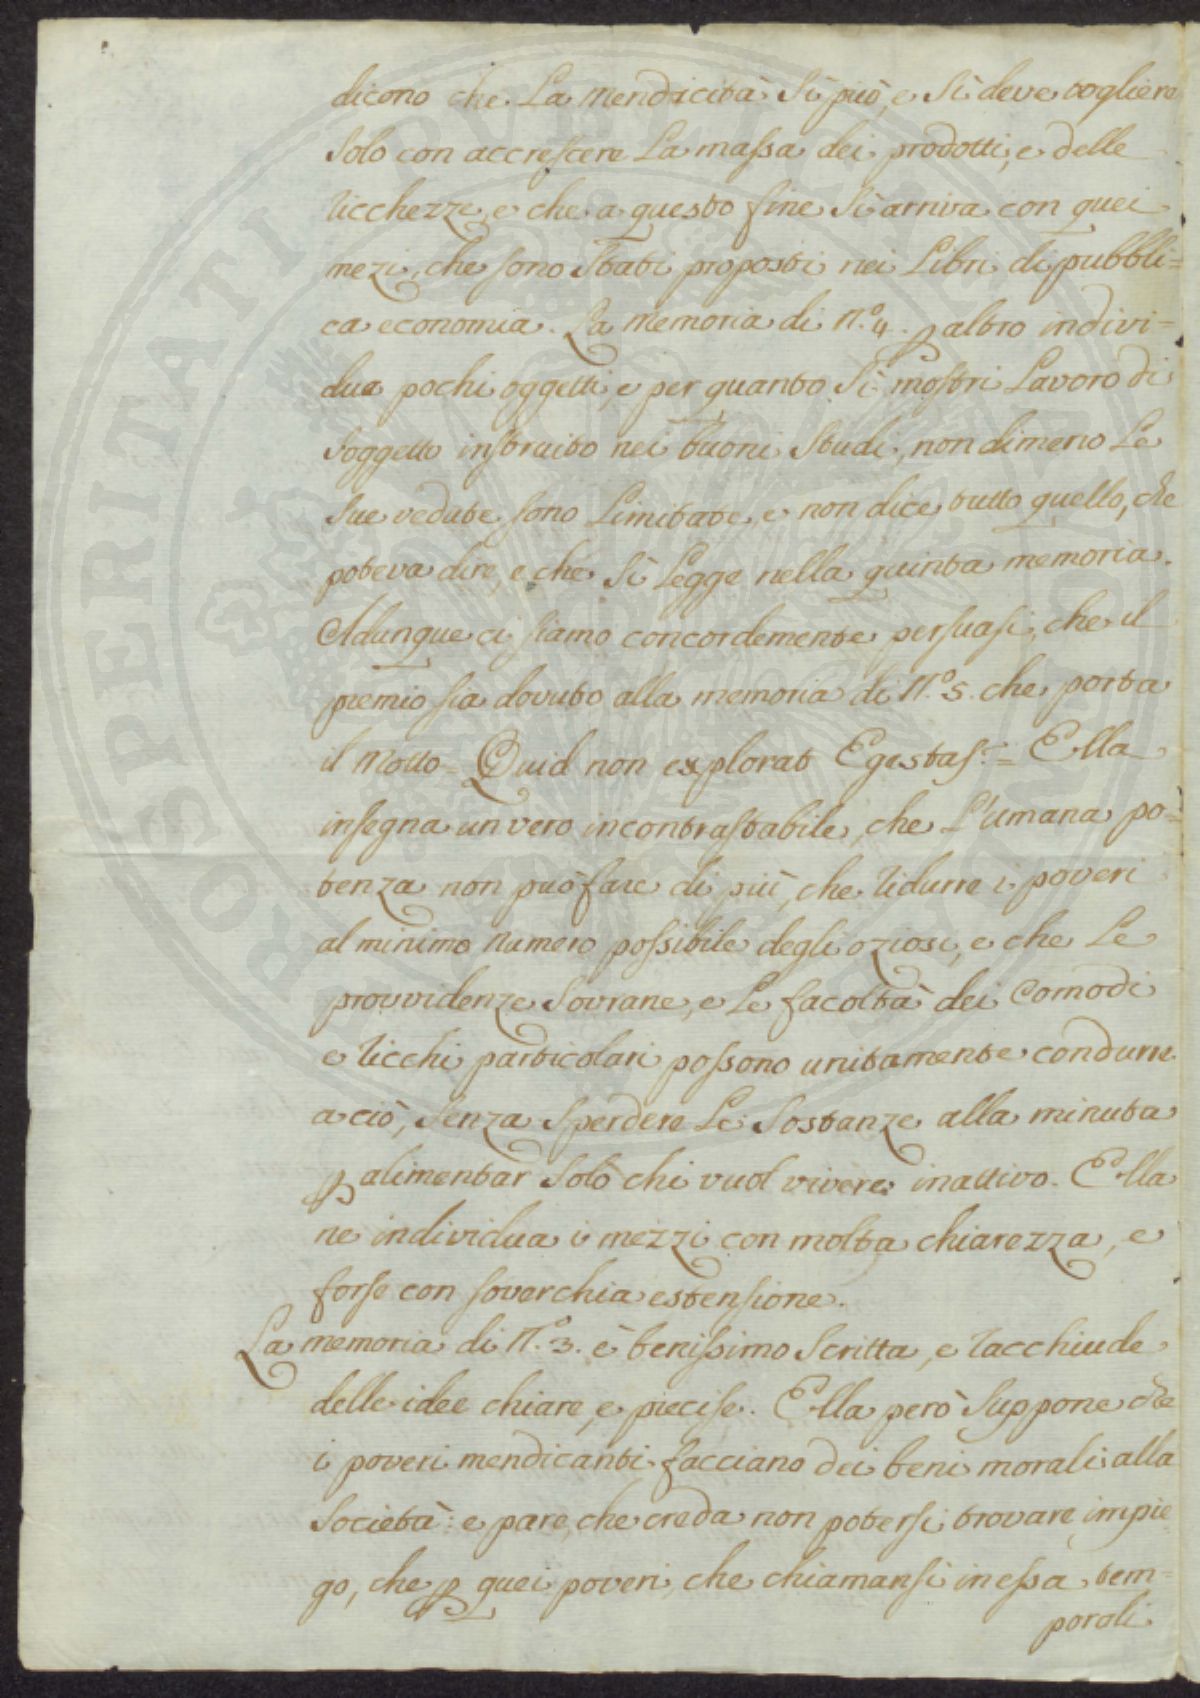 dicono che La mendicità si può, e si deve togliere
solo con accrescere La massa dei prodotti, e delle
ricchezze, e che a questo fine si arriva con quei
mezi, che sono stati proposti nei Libri di pubbli=
ca economia. La memoria di N.º 4. ꝑ altro indivi=
dua pochi oggetti, e per quanto si mostri Lavoro di
soggetto instruito nei buoni studi, non dimeno Le
sue vedute sono Limitate, e non dice tutto quello, che
poteva dire, e che si Legge nella quinta memoria.
Adunque ci siamo concordemente persuasi, che il
premio sia dovuto alla memoria di N.º 5. che porta
il Motto = Quid non explorat Egestas? = Ella
insegna un vero incontrastabile, che L'umana po=
tenza non può fare di più, che ridurre i poveri
al minimo numero possibile degli oziosi, e che Le
provvidenze Sovrane, e Le facoltà dei Comodi
e ricchi particolari possono unitamente condurre
a ciò, senza sperdere Le Sostanze alla minuta
ꝑ alimentar solo chi vuol vivere inattivo. Ella
ne individua i mezzi con molta chiarezza, e
forse con soverchia estensione.
La memoria di N.º 3. è benissimo scritta, e racchiude
delle idee chiare, e precise. Ella però suppone che
i poveri mendicanti facciano dei beni morali alla
Società: e pare, che creda non potersi trovare impie=
go, che ꝑ quei poveri, che chiamansi in essa tem=
porali
PROSPERITATI PUBLICAE AUGENDAE